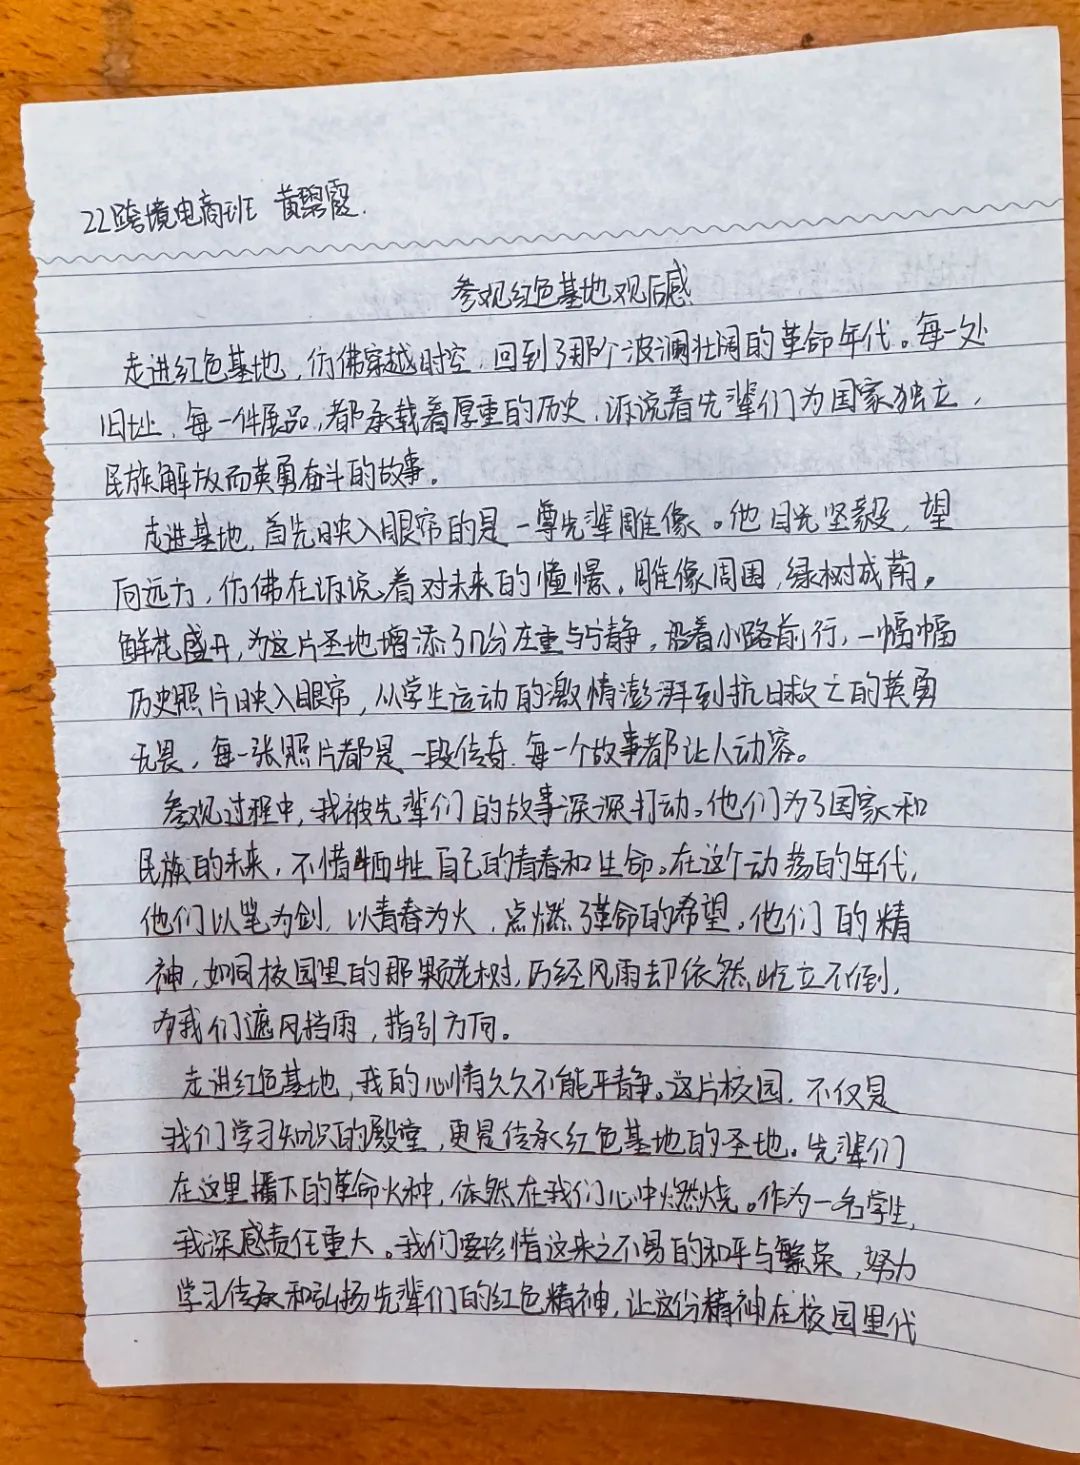 22跨境电商班 黄碧霞.
参观红色基地观后感
走进红色基地，仿佛穿越时空，回到了那个波澜壮阔的革命年代。每一处
旧址、每一件展品，都承载着厚重的历史，诉说着先辈们为国家独立，
民族解放而英勇奋斗的故事。
走进基地，首先映入眼帘的是一尊先辈雕像。他目光坚毅，望
向远方，仿佛在诉说着对未来的憧憬，雕像周围，绿树成荫，
鲜花盛开，为这片圣地增添了几分庄重与宁静，沿着小路前行，一幅幅
历史照片映入眼帘，从学生运动的激情澎湃到抗日救亡的英勇
无畏，每一张照片都是一段传奇，每一个故事都让人动容。
参观过程中，我被先辈们的故事深深打动。他们为了国家和
民族的未来，不惜牺牲自己的青春和生命。在这个动荡的年代，
他们以笔为剑，以青春为火，点燃了革命的希望。他们的精
神，如同校园里的那颗老树，历经风雨却依然屹立不倒，
为我们遮风挡雨，指引方向。
走进红色基地，我的心情久久不能平静。这片校园，不仅是
我们学习知识的殿堂，更是传承红色基地的圣地。先辈们
在这里播下的革命火种，依然在我们心中燃烧。作为一名学生，
我深感责任重大。我们要珍惜这来之不易的和平与繁荣，努力
学习传承和弘扬先辈们的红色精神，让这份精神在校园里代